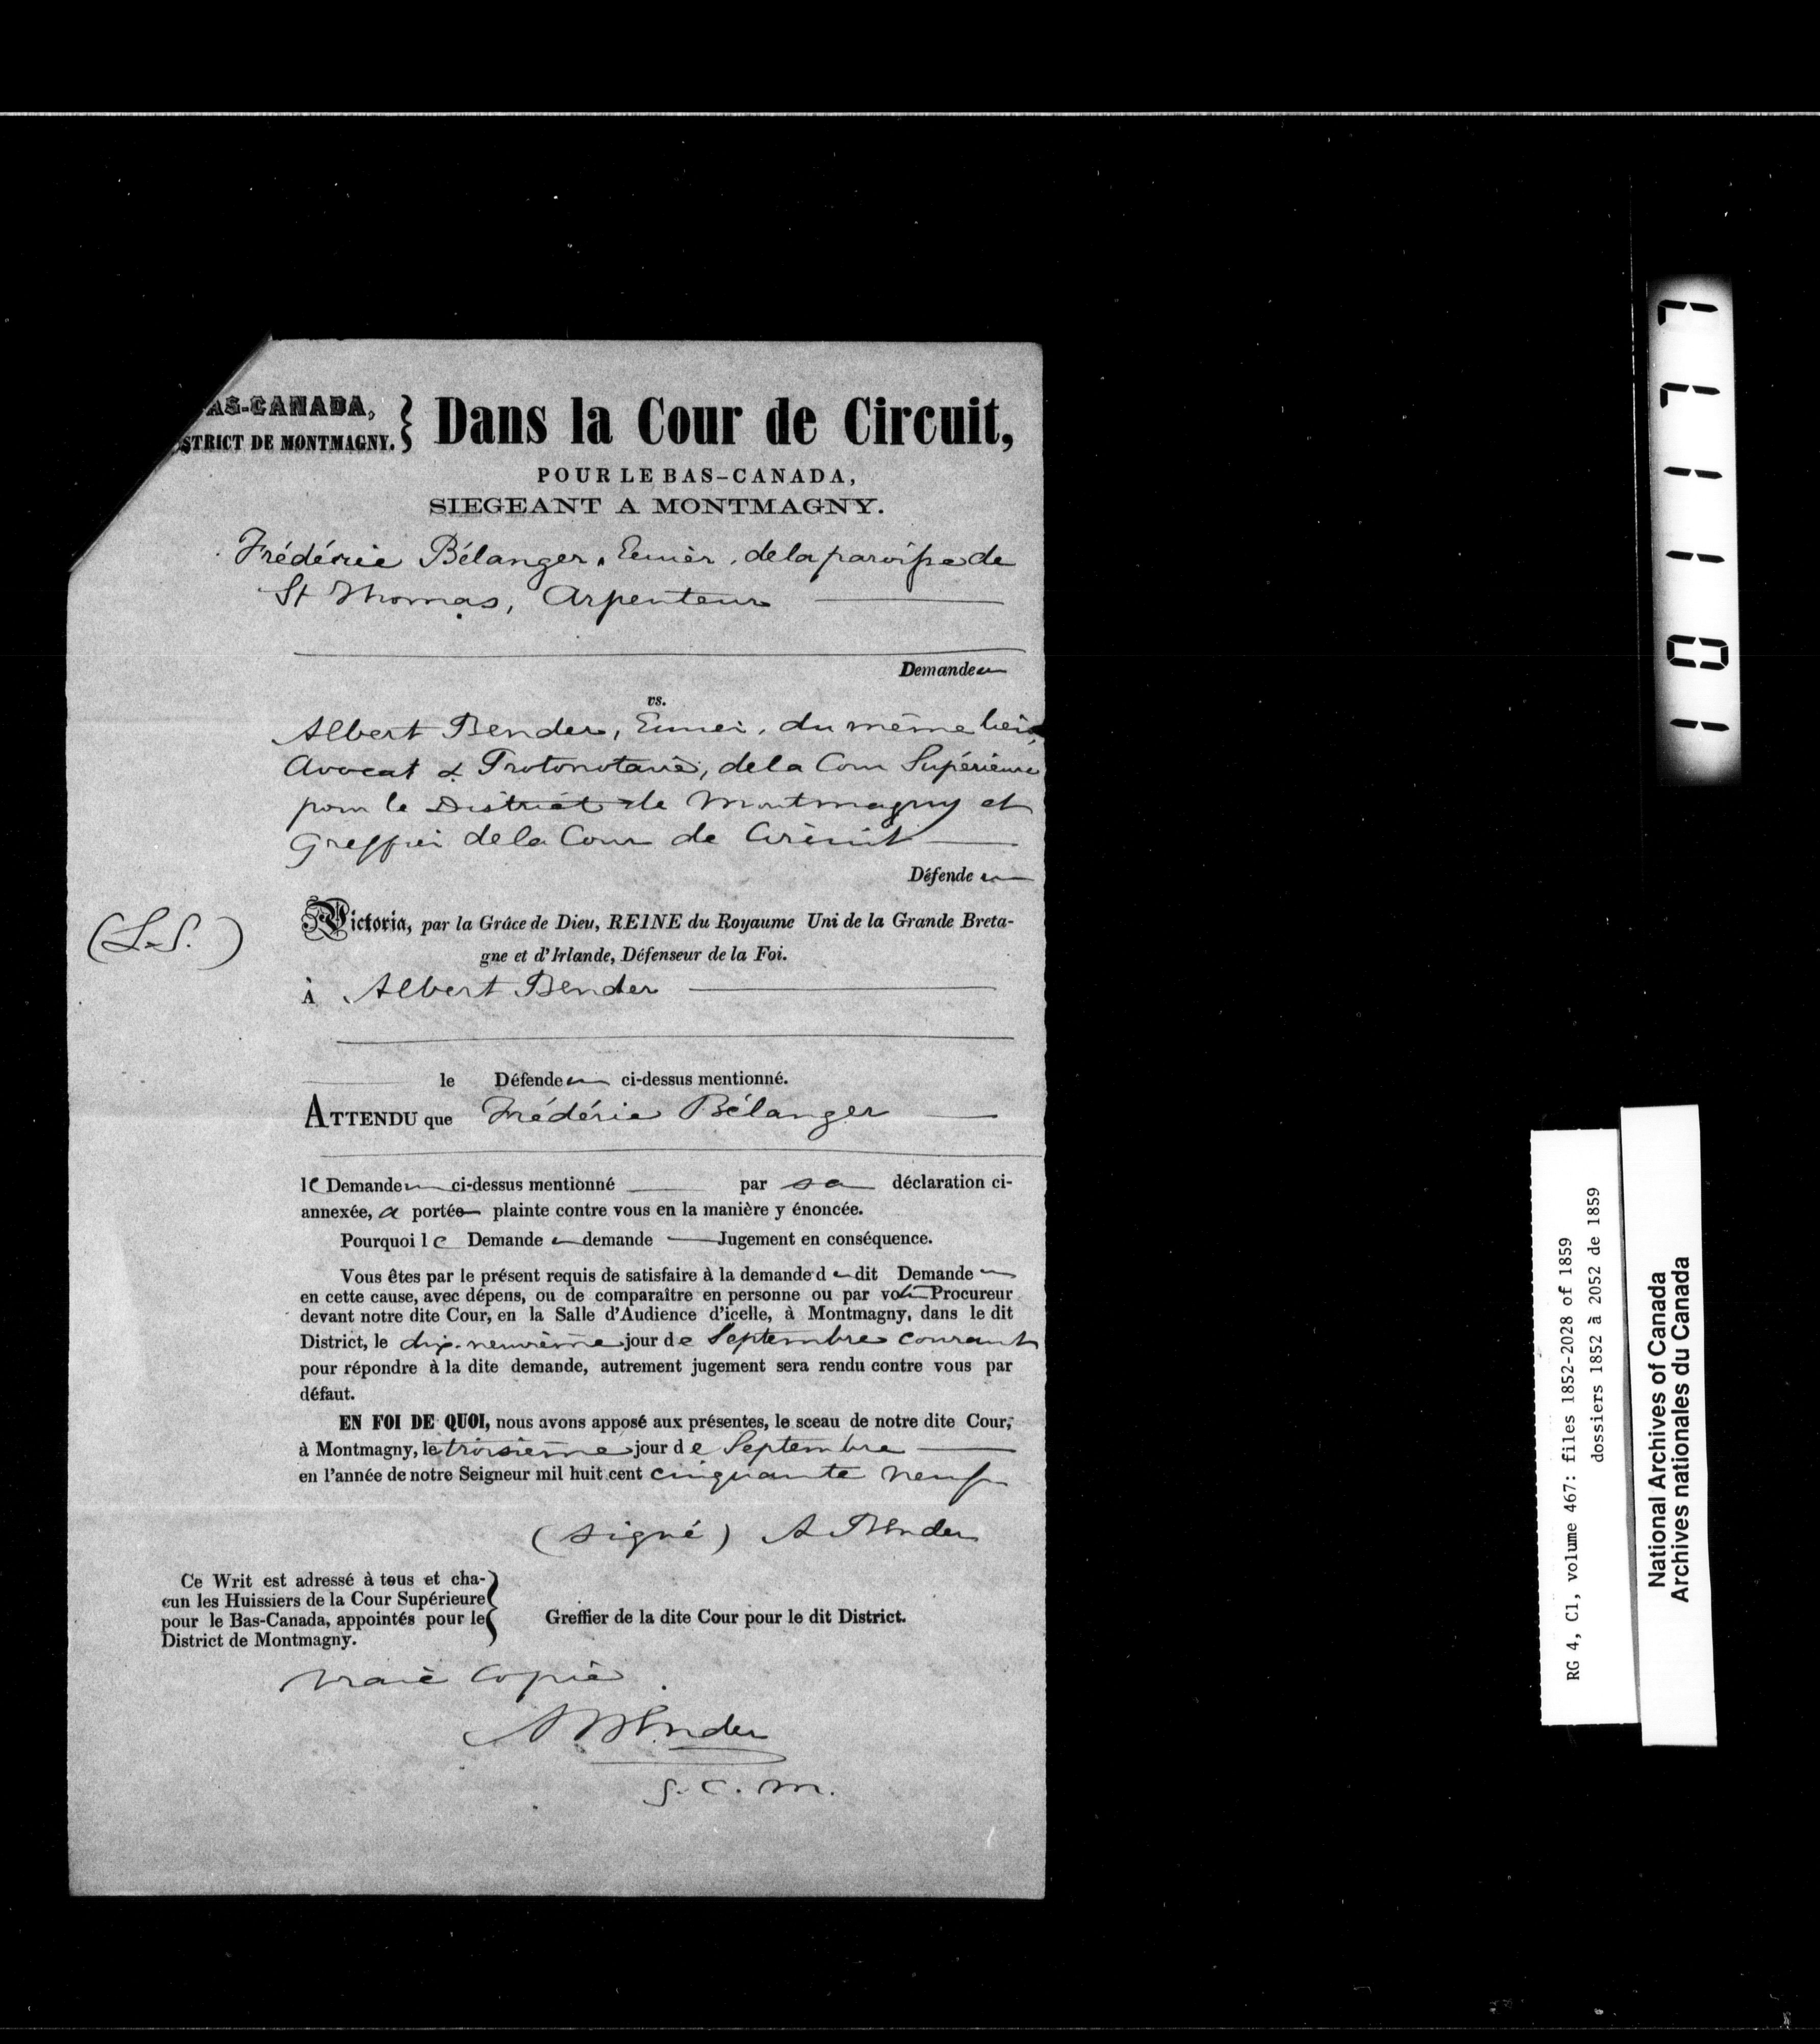 AS-CANADA,
STRICT DE MONTMAGNY.
Dans la Cour de Circuit,
POUR LE BAS-CANADA,
SIEGEANT A MONTMAGNY.
Frédéric Bélanger, Ecuier, de la paroisse de
St Thomas, Arpenteur
Demandeur
vs.
Albert Bender, Ecuier, du même lieu,
Avocat & Protonotaire, de la Cour Supérieure
pour le District de Montmagny et
Greffier de la Cour de Circuit
Défendeur
(L.S.)
Victoria, par la Grâce de Dieu, REINE du Royaume Uni de la Grande Breta-
gne et d'Irlande, Défenseur de la Foi.
À Albert Bender
le Défendeur ci-dessus mentionné.
ATTENDU que Frédéric Bélanger
le Demandeur ci-dessus mentionné par sa déclaration ci-
annexée, a porté plainte contre vous en la manière y énoncée.
Pourquoi le Demandeur demande Jugement en conséquence.
Vous êtes par le présent requis de satisfaire à la demande du dit Demandeur
en cette cause, avec dépens, ou de comparaître en personne ou par votre Procureur
devant notre dite Cour, en la Salle d'Audience d'icelle, à Montmagny, dans le dit
District, le dix-neuvième jour de Septembre courant
pour répondre à la dite demande, autrement jugement sera rendu contre vous par
défaut.
EN FOI DE QUOI, nous avons apposé aux présentes, le sceau de notre dite Cour,
à Montmagny, le troisième jour de Septembre
en l'année de notre Seigneur mil huit cent cinquante neuf
(signé) A Bender
Ce Writ est adressé à tous et cha-
cun les Huissiers de la Cour Supérieure
pour le Bas-Canada, appointés pour le
District de Montmagny.
Greffier de la dite Cour pour le dit District.
vraie copie
A Bender
G. C. M.
101177
RG 4, C1, volume 467: files 1852-2028 of 1859
dossiers 1852 à 2052 de 1859
National Archives of Canada
Archives nationales du Canada